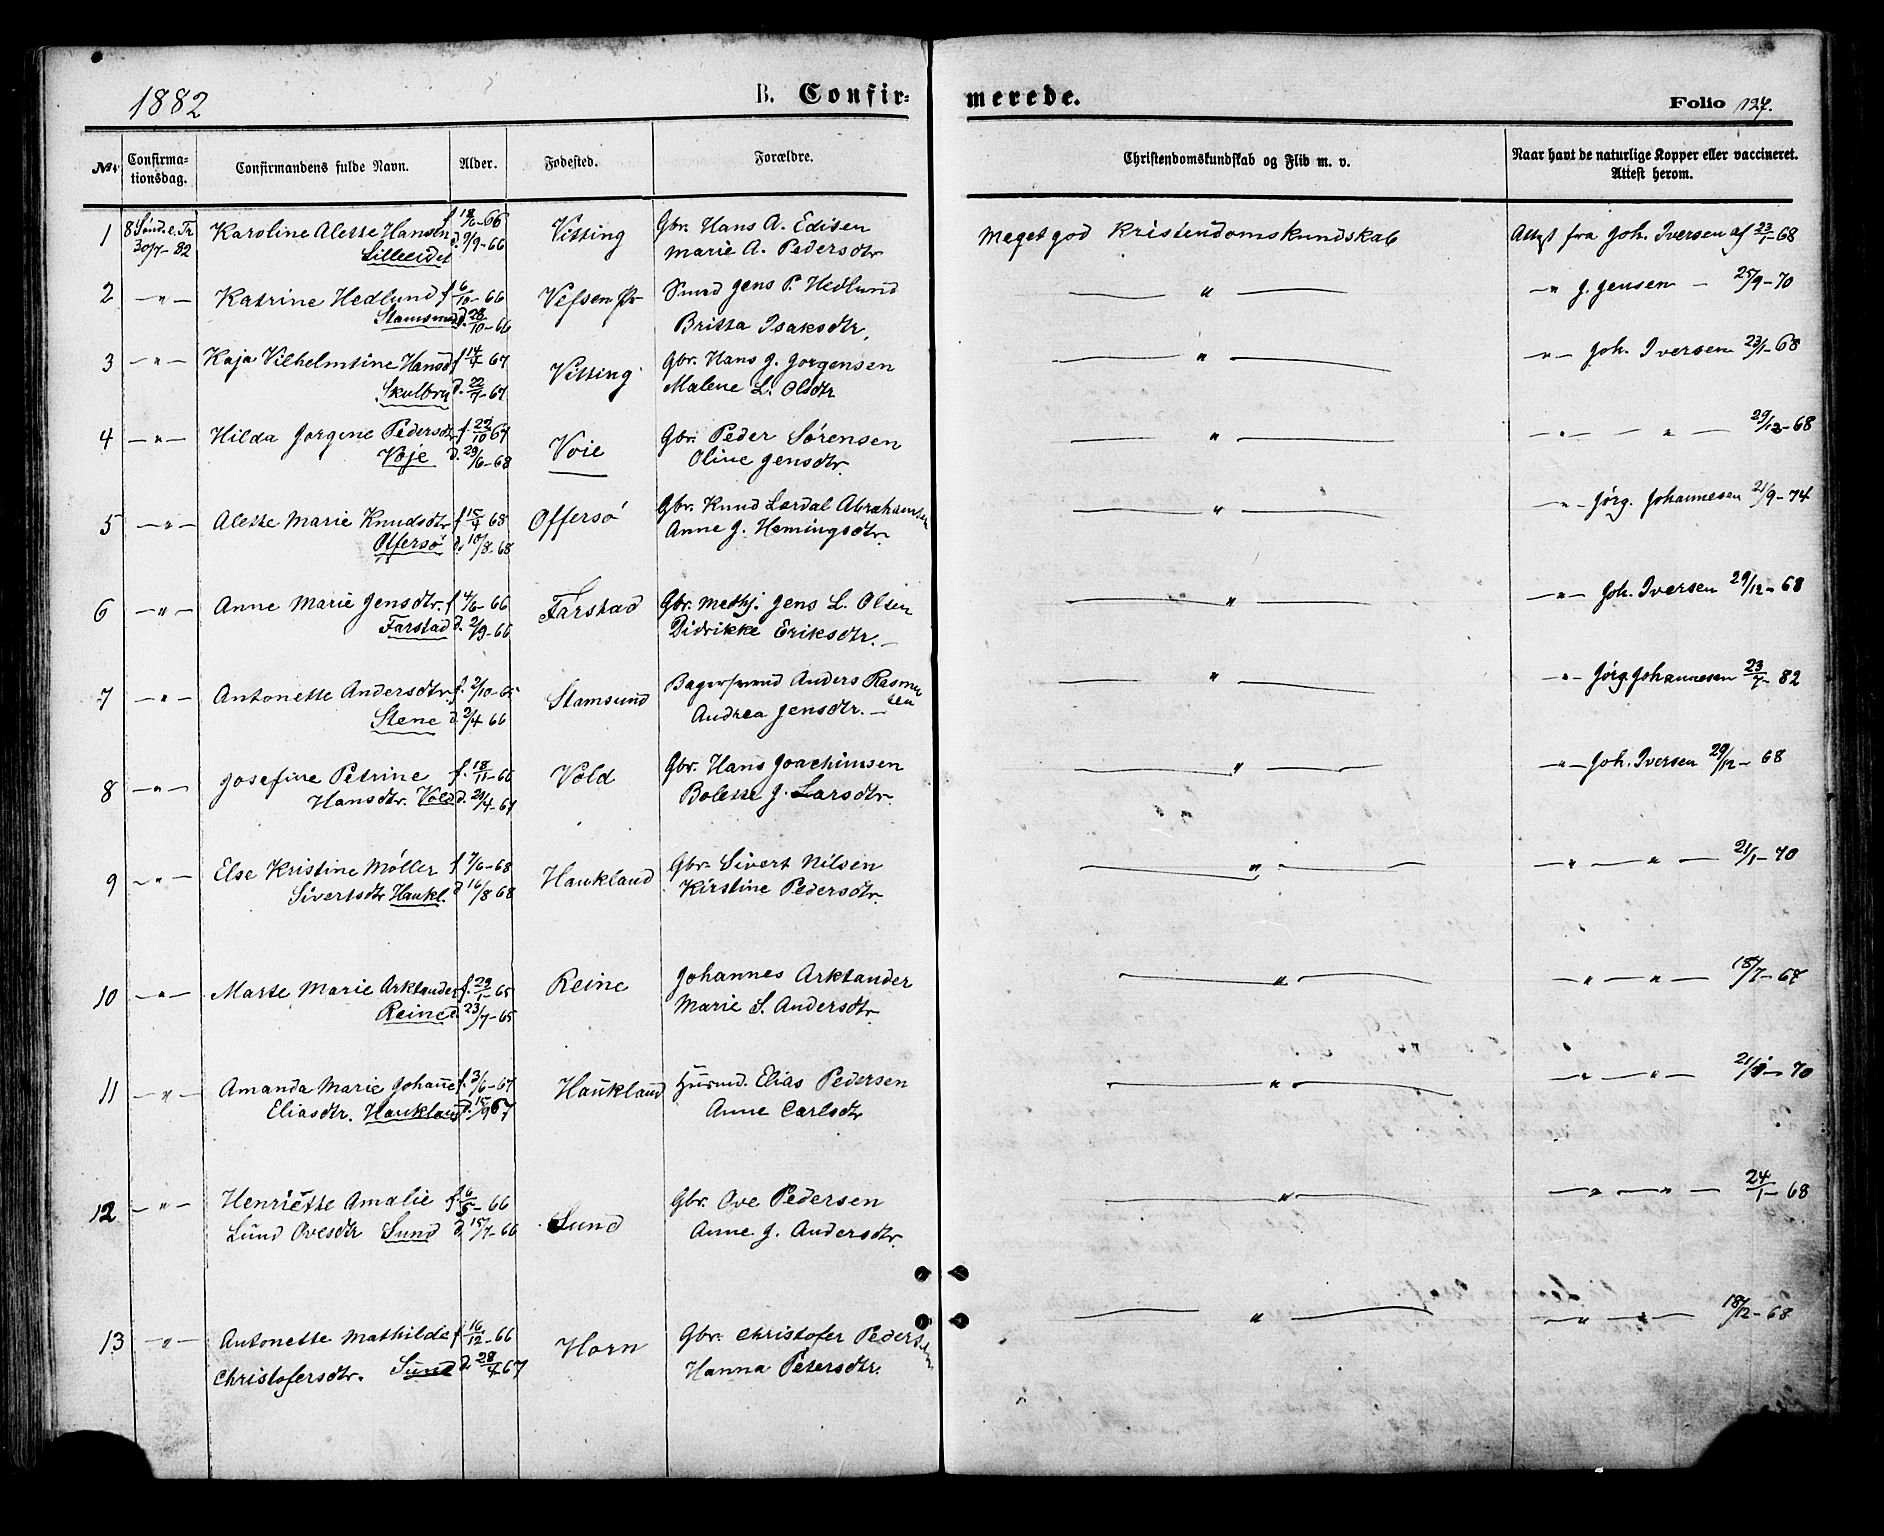 1882
B. Confir-
merede.
Folio 127.
No.
Confirma-
tionsdag.
Confirmandens fulde Navn.
Alder.
Fødested.
Forældre.
Christendomskundskab og Flid m. v.
Naar havt de naturlige Kopper eller vaccineret.
Attest herom.
1 8 Sønd. e. Tr 30/7-82 Karoline Alette Hansen f 18/6-66 Vitting Gbr. Hans A. Edisen Meget god Kristendomskundskab Attest fra Joh. Iversen af 23/1-68
Lilleeidet d. 9/9-66 Marie A. Pedersdtr
2 -"- Katrine Hedlund f 6/10-66 Vefsen Smed Jens P. Hedlund " -"- J. Jensen - 25/9-70
Stamsund d. 28/10-66 Britta Isaksdtr.
3 -"- Kaja Vilhelmtine Hansd f 14/4-67 Vitting Gbr. Hans J. Jorgensen " -"- Joh. Iversen 23/1-68
Skulbru d. 22/7-67 Malene L. Olsdtr
4 -"- Hilda Jorgine Pedersdtr f. 22/10 67 Voie Gbr. Peder Sørensen " -"- -"- 29/12-68
Voje d. 29/6-68 Oline Jensdtr.
5 -"- Alette Marie Knudsdtr f 15/4 68 Offersø Gbr. Knud Lardal Abrahamsen " -"- Jørg. Johannesen 21/9-74
Offersø d. 10/8-68 Anne J. Hemingsdtr.
6 -"- Anne Marie Jensdtr. f 4/6-66 Farstad Gbr. Methj. Jens L. Olsen " -"- Joh. Iversen 29/12-68
Farstad d. 2/9-66 Didrikke Eriksdtr.
7 -"- Antonette Andersdtr. f. 2/10-65 Stamsund Bagersvend Anders Rasmussen " -"- Jørg. Johannesen 23/7-82
Stene d. 2/4 66 Andrea Jensdtr.
8 -"- Josefine Petrine f. 18/11-66 Vold Gbr. Hans Joachimsen " -"- Joh. Iversen 29/12-68
Hansdtr. Vold d. 29/4-67 Bolette J. Larsdtr.
9 -"- Else Kristine Møller f 7/6-68 Haukland Gbr. Sivert Nilsen " -"- -"- 21/1-70
Sivertsdtr Haukl. d 16/8 68 Kirstine Pedersdtr.
10 -"- Marte Marie Arktander f. 29/1-65 Reine Johannes Arktander " -"- -"- 18/7-67
Reine d. 23/7-65 Marie S. Andersdtr.
11 -"- Amanda Marie Johane f. 3/6-67 Haukland Husmd. Elias Pedersen " -"- -"- 21/1-70
Eliasdtr. Haukland d. 15/9 67 Anne Carlsdtr
12 -"- Henriette Amalie f. 6/5-66 Sund Gbr. Ove Pedersen " -"- -"- 24/1-68
Lund Ovesdtr Sund d 15/7-66 Anne J. Andersdtr.
13 -"- Antonette Mathilde f 16/12-66 Horn Gbr. Christofer Pedersen " -"- -"- 18/12-68
Christofersdtr. Sund d. 28/4-67 Hanna Petersdtr.